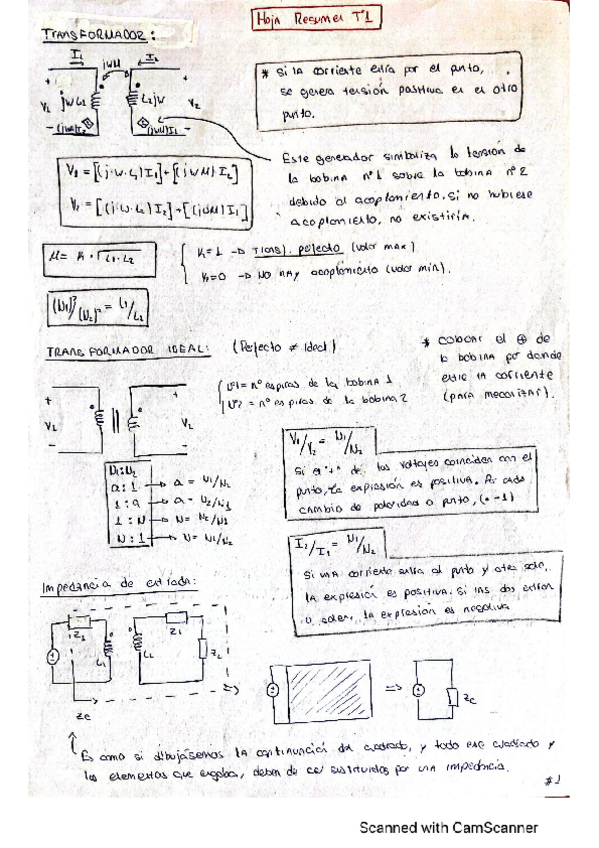 Hoja Resumen T'1
TRANSFORMADOR:
I1 jωM I2
+ + 
V1 jωL1 L2jω V2
(jωM)I2 (jωM)I1
* Si la corriente entra por el punto,
se genera tensión positiva en el otro
punto.
Este generador simboliza la tensión de
la bobina nº1 sobre la bobina nº2
debido al acoplamiento, si no hubiese
acoplamiento, no existiría.
= [(j·ω·L1)I1]+[(jωM)I2]
M = K·√L1·L2
K=1 → Transf. perfecto (valor max)
K=0 → NO hay acoplamiento (valor min).
(N1)²/(N2)² = L1/L2
TRANSFORMADOR IDEAL: (Perfecto ≠ Ideal)
* colocar el ⊕ de
la bobina por donde
entre la corriente
(para mecanizar).
Nº1 = nº espiras de la bobina 1
Nº2 = nº espiras de la bobina 2
+ +
V2
- -
N1:N2
a:1 → a = N1/N2
1:a → a = N2/N1
1:N → N = N2/N1
N:1 → N = N1/N2
V1/V2 = N1/N2
Si el "+" de los voltajes coinciden con el
punto, la expresión es positiva. Por cada
cambio de polaridad o punto, (·-1)
I2/I1 = N1/N2
Si una corriente entra al punto y otra sale,
la expresión es positiva. Si las dos entran
o salen, la expresión es negativa
Impedancia de entrada:
Z1 L1 L2 ZL
Ze
⇒ Ze
Es como si dibujásemos la continuación del cuadrado, y todo ese cuadrado y
los elementos que engloba, deben de ser sustituidos por una impedancia.
#1
Scanned with CamScanner